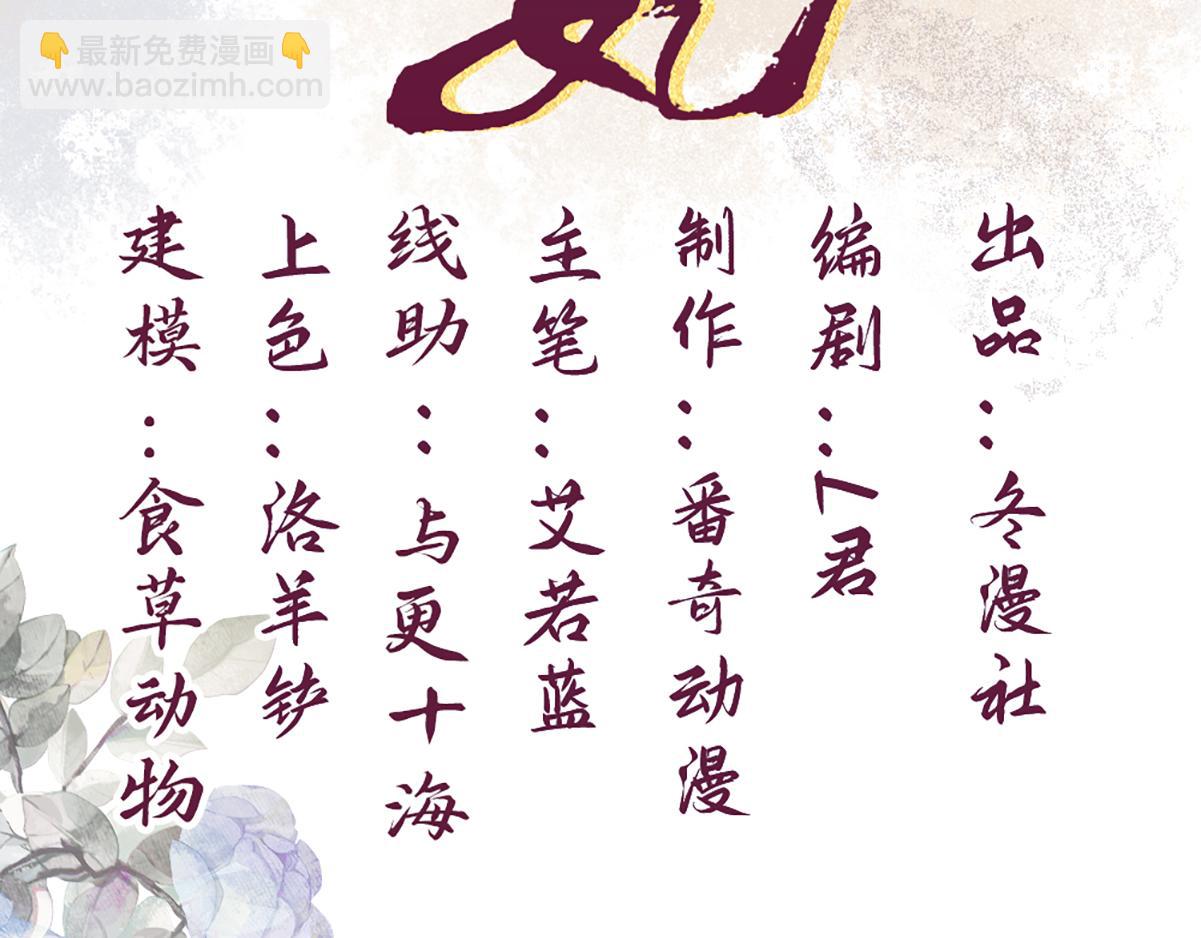 👇最新免费漫画👇
www.baozimh.com
出品:冬漫社
编剧:T君
制作:番奇动漫
主笔:艾若蓝
线助:与更十海
上色:洛羊铲
建模:食草动物